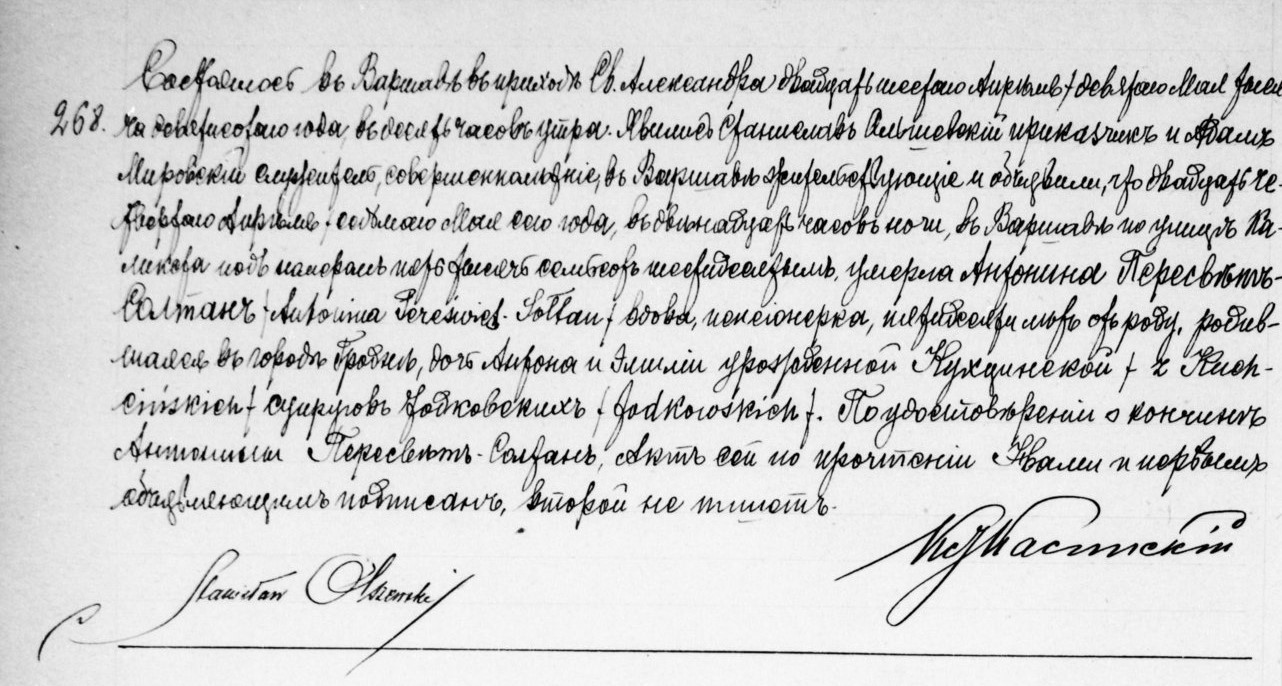 Состоялось въ Варшавѣ въ приходѣ Св. Александра двадцать шестого Апрѣля / девятаго Мая тыся-
268. ча девятисотаго года, въ десять часовъ утра. Явились Станиславъ Ольшевскій приказчикъ и Адамъ
Мировскій служитель, совершеннолѣтніе, въ Варшавѣ жительствующіе и объявили, что двадцать че-
твертаго Апрѣля / седьмаго Мая сего года, въ двѣнадцать часовъ ночи, въ Варшавѣ по улицѣ
подъ номеромъ тысяча семьсотъ шестьдесятымъ, умерла Антонина Пересвѣтъ-
Солтанъ / Antonina Pereświet-Sołtan / вдова, пенсіонерка, пятидесяти лѣтъ отъ роду, родив-
шаяся въ городѣ Гроднѣ, дочь Антона и Эмиліи урожденной Кухцинской / z Kuch-
cińskich / супруговъ Іодковскихъ / Jodkowskich /. По удостовѣреніи о кончинѣ
Антонины Пересвѣтъ-Солтанъ, Актъ сей по прочтеніи Нами и первымъ
объявляющимъ подписанъ, второй не пишетъ.
Stanisław Olszewski